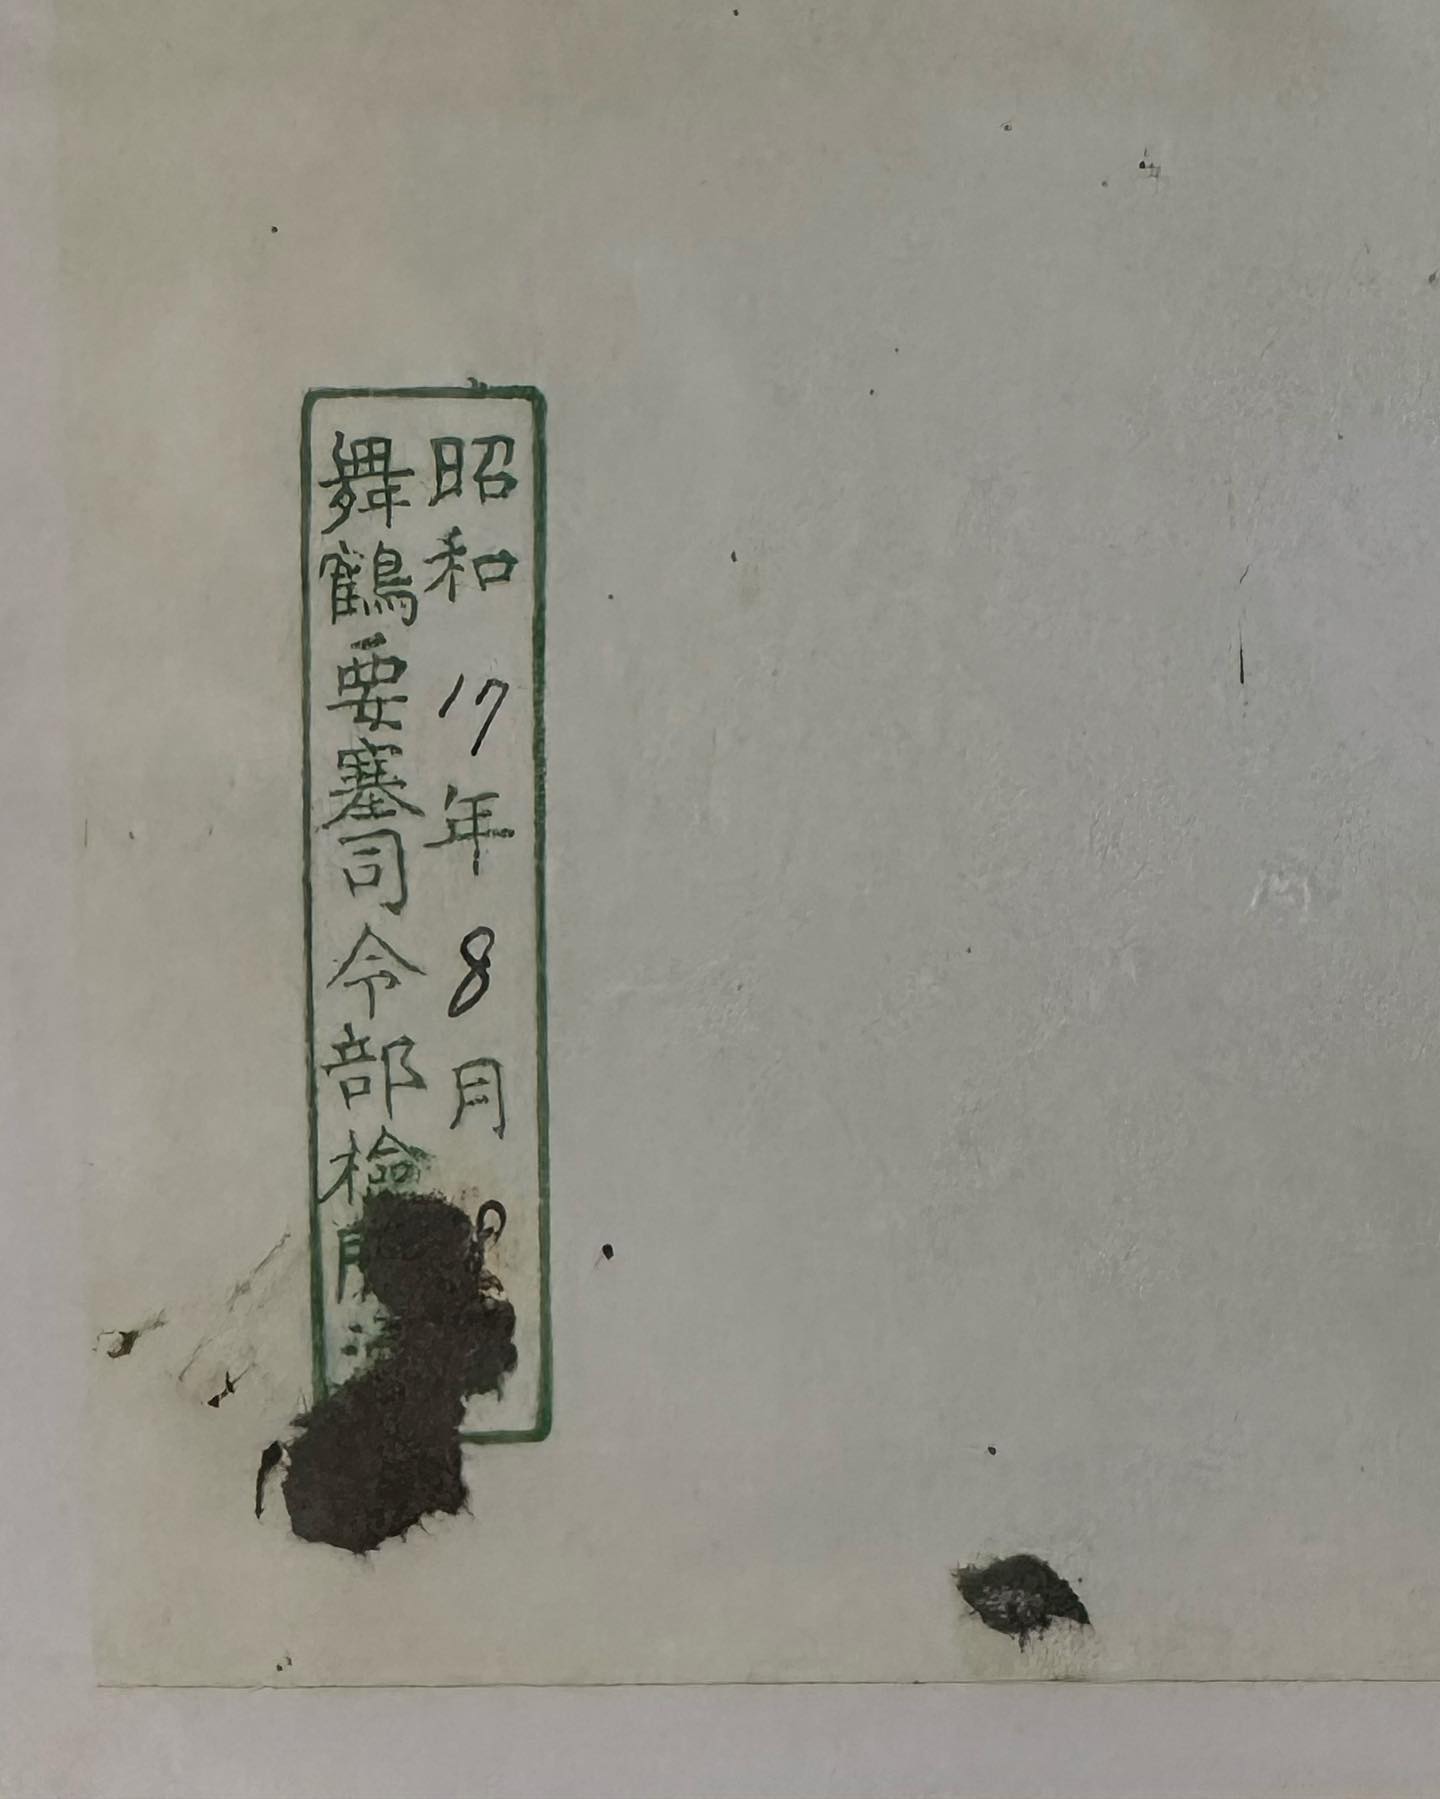 昭和17年8月
舞鶴要塞司令部檢